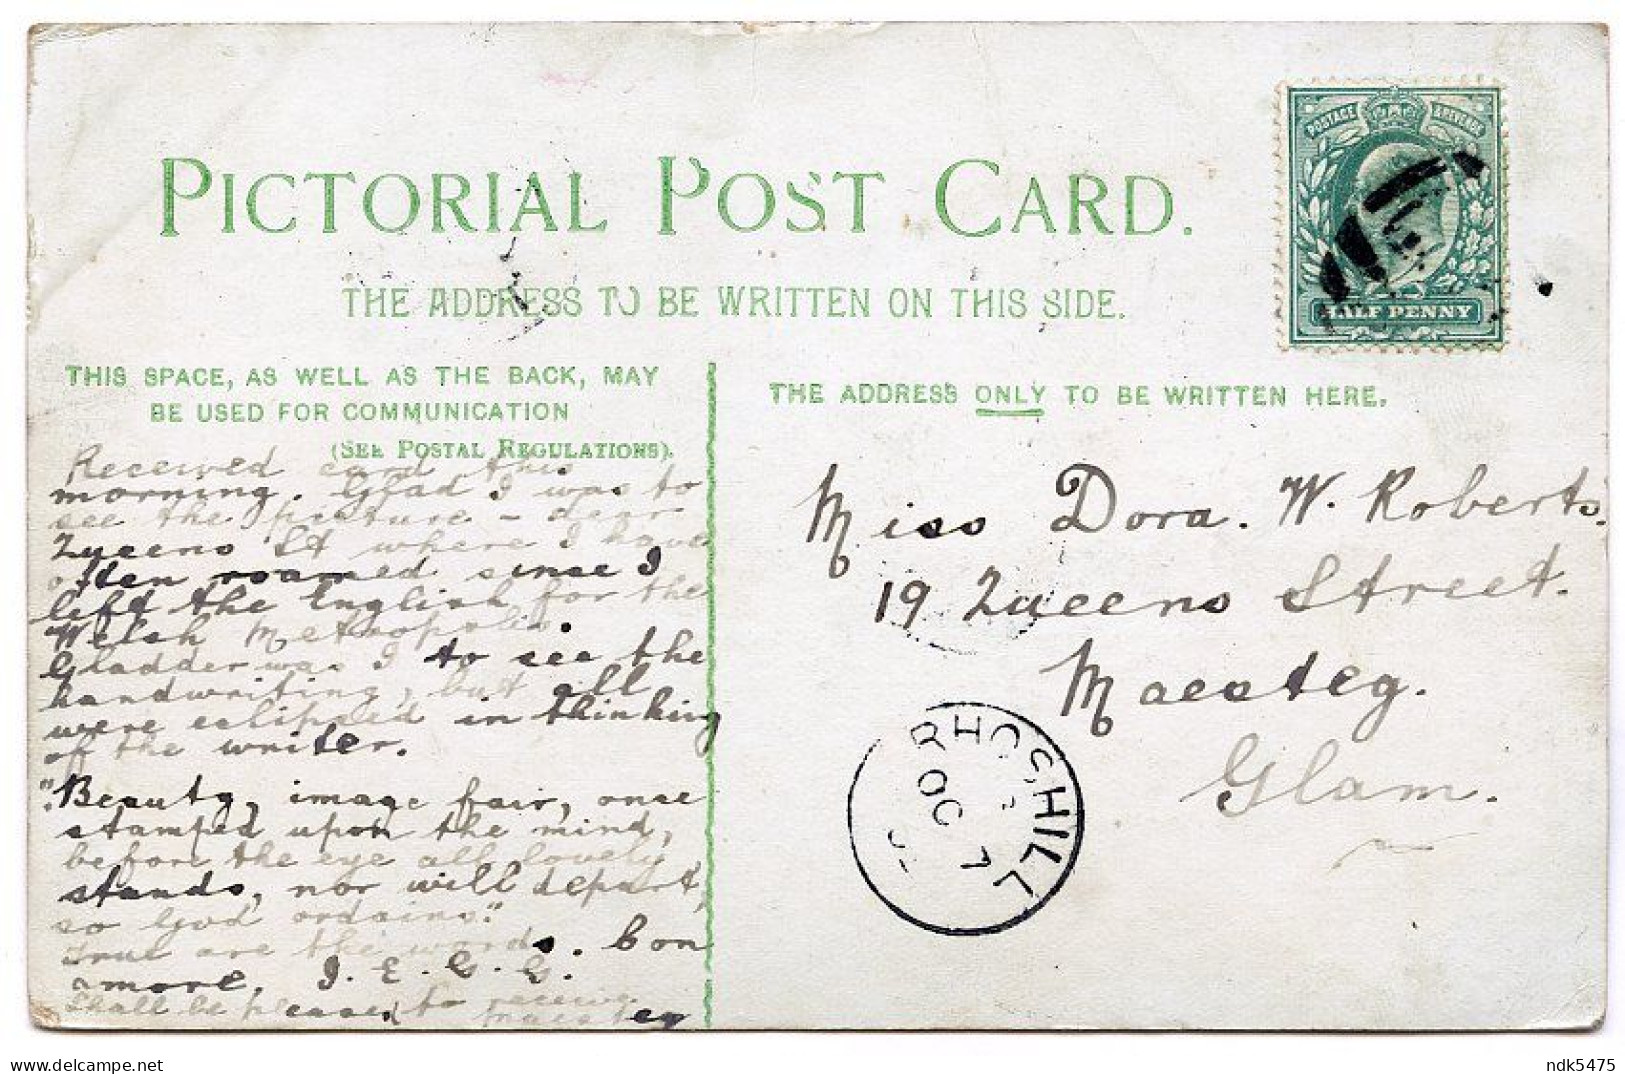 PICTORIAL POST CARD.
THE ADDRESS TO BE WRITTEN ON THIS SIDE.
POSTAGE & REVENUE
HALF PENNY
THIS SPACE, AS WELL AS THE BACK, MAY
BE USED FOR COMMUNICATION
(SEE POSTAL REGULATIONS).
Received card this
morning. Glad I was to
see the picture - dear
Queens St where I have
often roamed since I
left the English for the
Welsh Metropolis.
Gladder was I to see the
handwriting, but all
were eclipsed in thinking
of the writer.
"Beauty, image fair, once
stamped upon the mind,
before the eye all lovely
stands, nor will depart,
so God ordains."
True are the words. Con
amore, J. E. G. G.
Shall be pleased to receive
Maesteg
THE ADDRESS ONLY TO BE WRITTEN HERE.
Miss Dora. W. Roberts.
19 Queens Street.
Maesteg.
Glam.
RHOSHILL
OC 7
07
delcampe.net
ndk5475